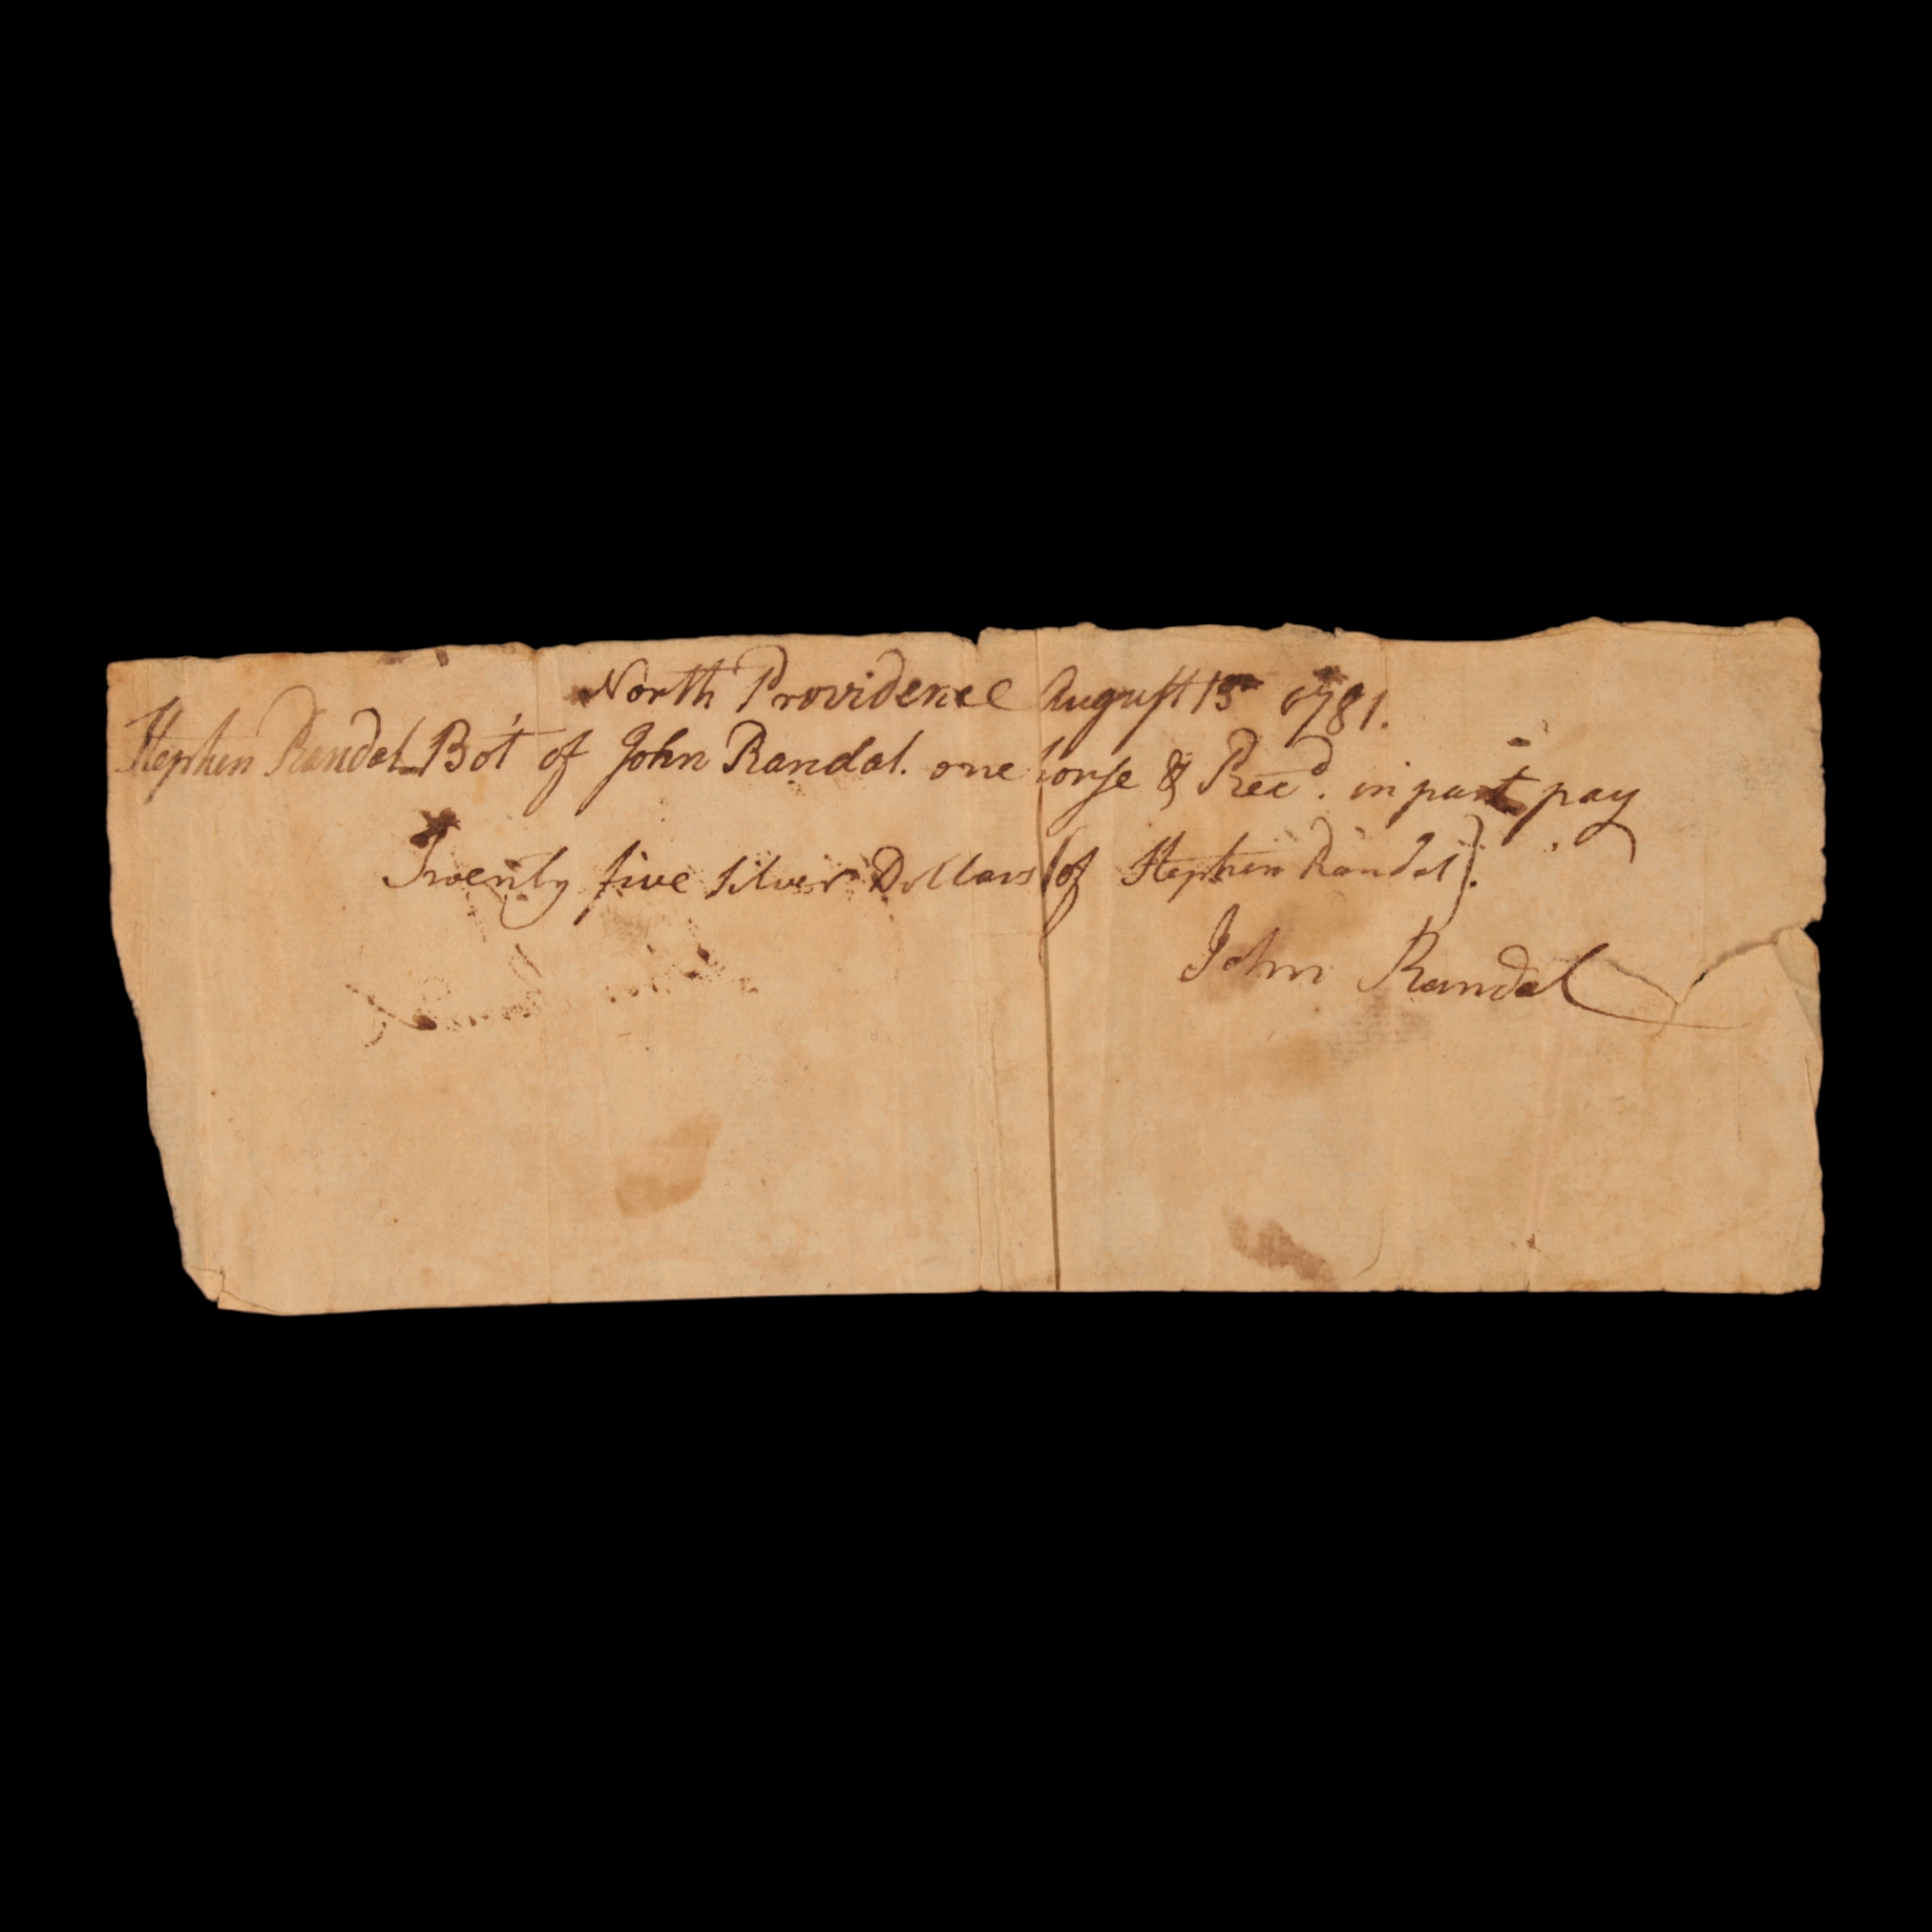 North Providence August 15 1781.
Stephen Randal Bot of John Randal. one horse & Recd. in part pay
Twenty five Silver Dollars (of Stephen Randal).
John Randal